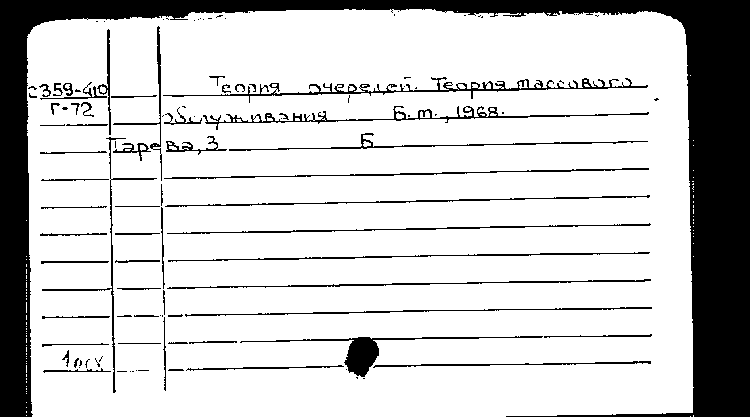 С359-410 Теория очередей. Теория массового
Г-72 обслуживания Б.м., 1968.
Тарева, 3 Б